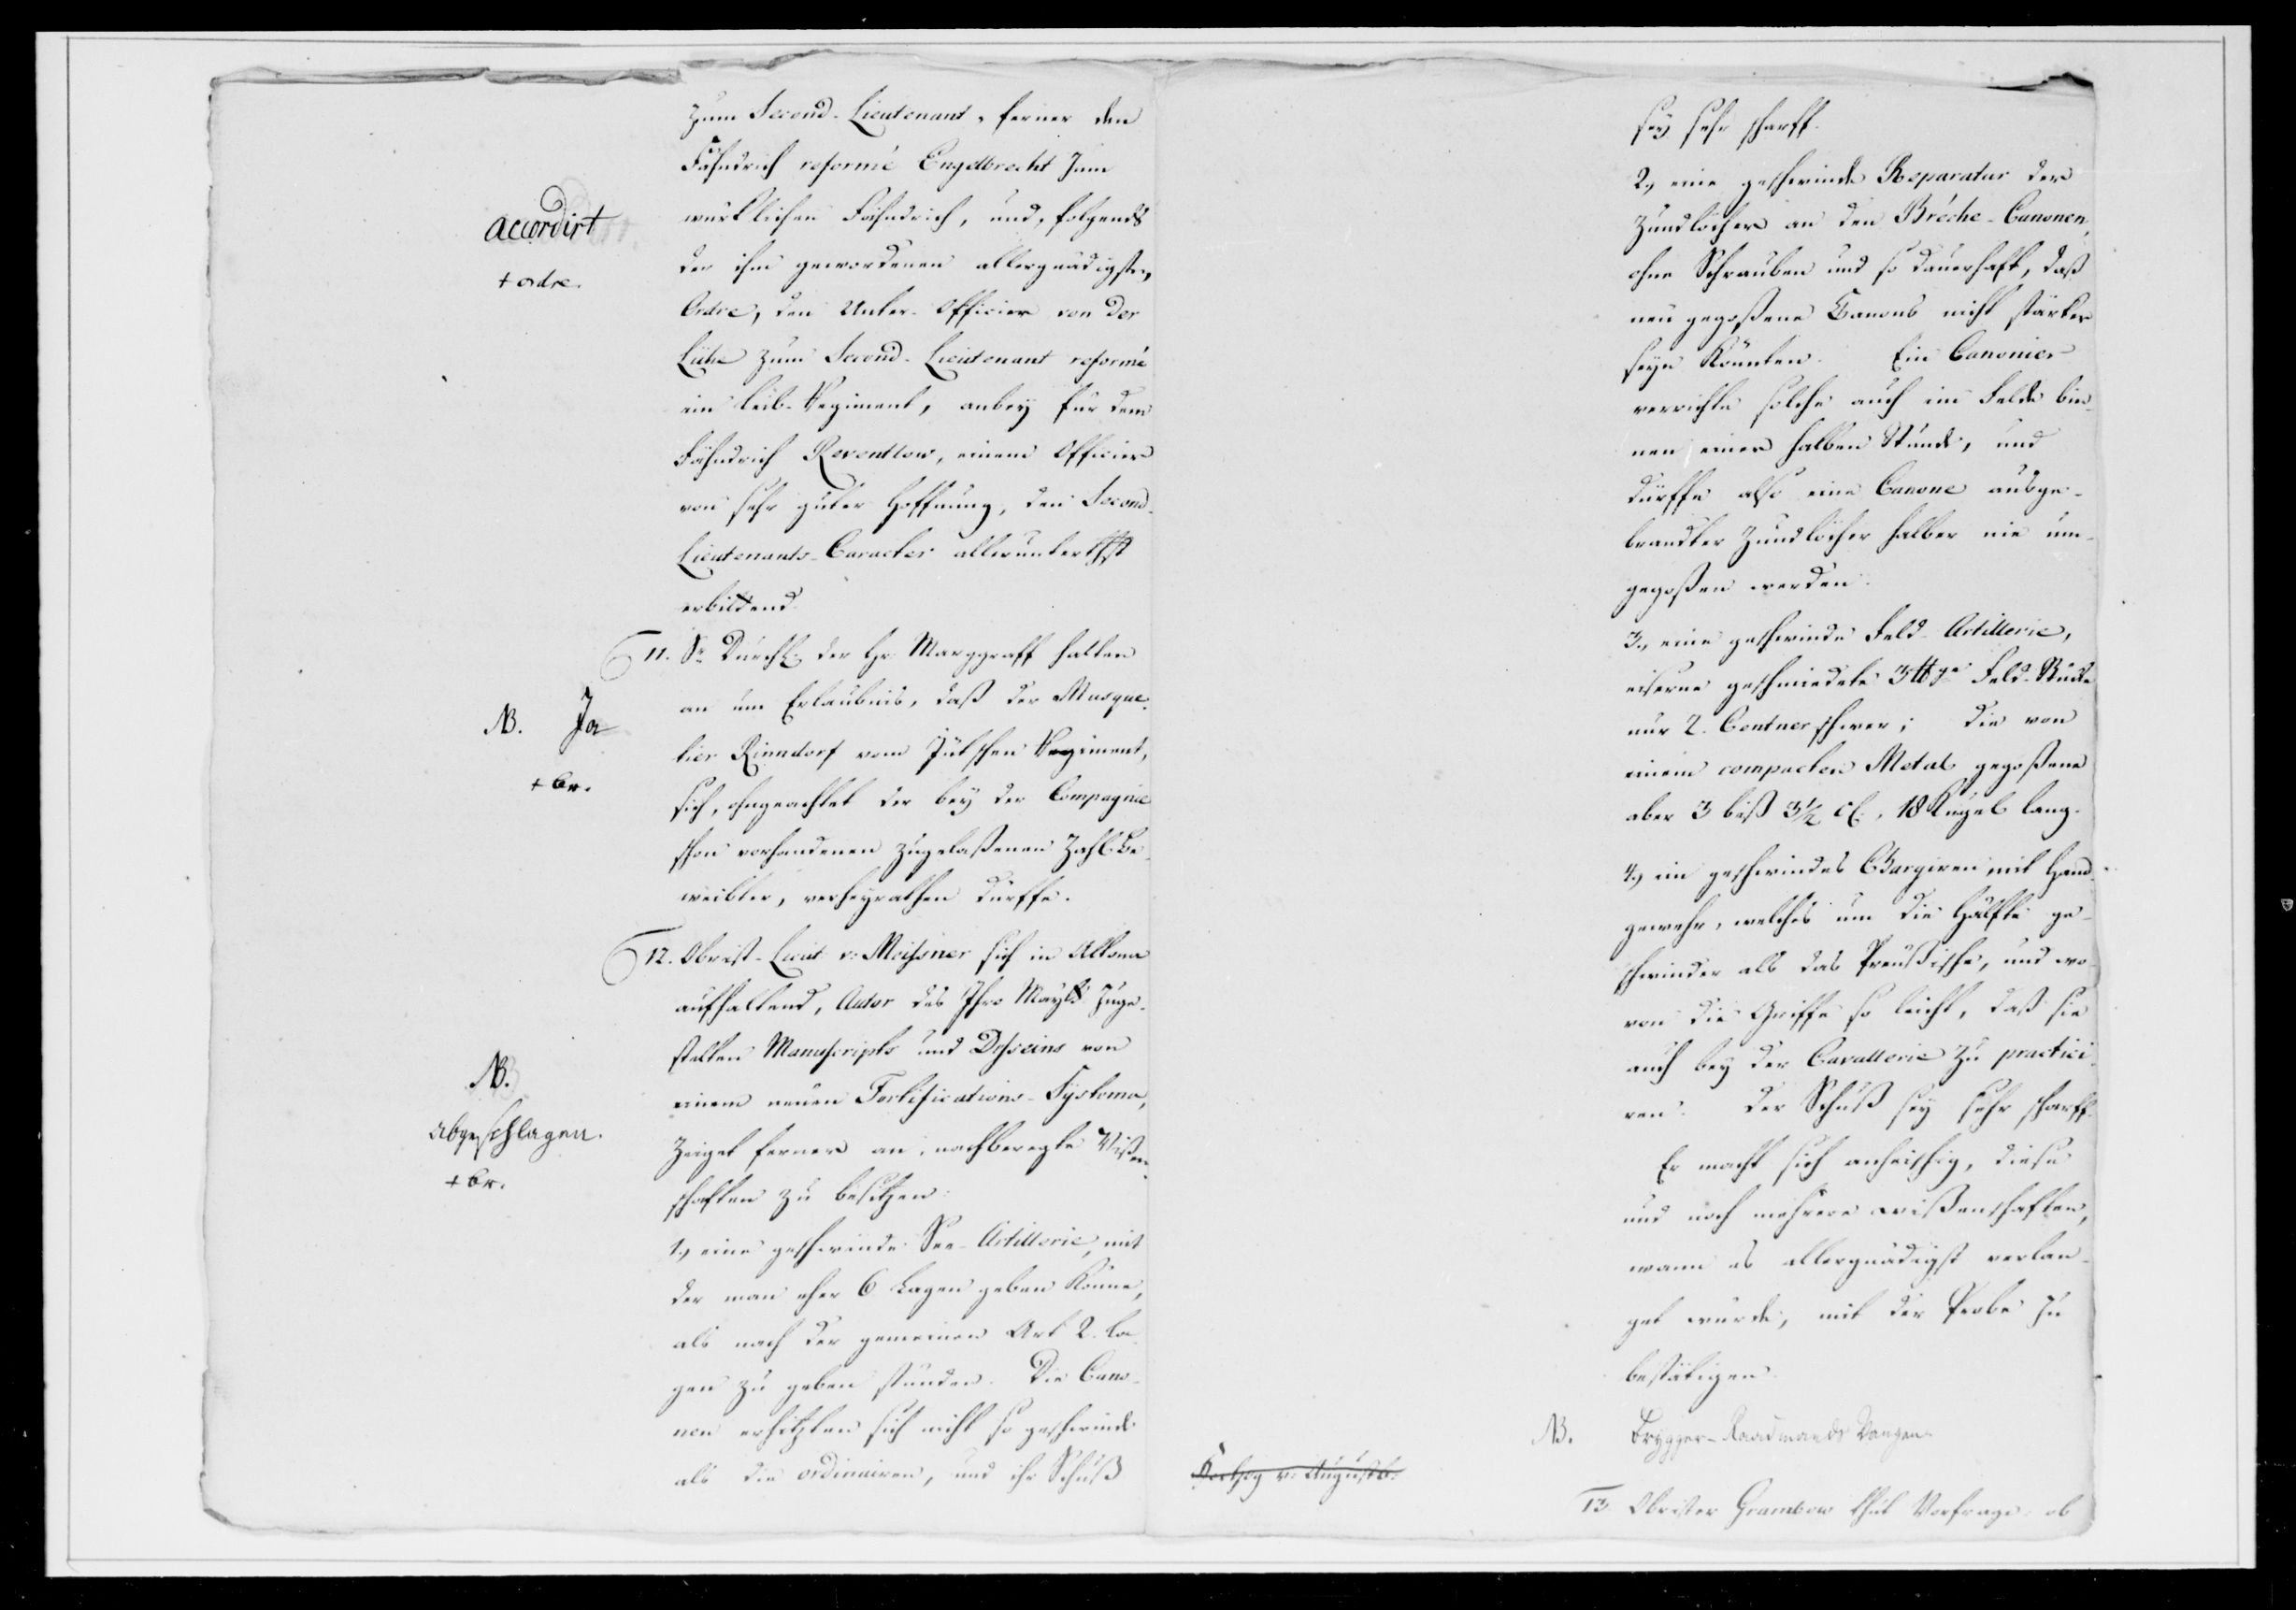 zum Second-Lieutenant, ferner den
Fähndrich reformé Engelbrecht zum
würklichen Fähndrich, und, folgends
accordirt
der ihm gewordenen allergnädigsten
+ ordre.
Ordre, den Unter-Officier von der
Lühe zum Second-Lieutenant reformé
im Leib-Regiment, anbey für dem
Fähndrich Reventlow, einem Officier
von sehr guter Hoffnung, den Second-
Lieutenants-Caracter allerunterthst
erbittend.
11. Sr. Durchl. der Hr. Marggraff halten
an um Erlaubnis, daß der Musque-
NB. Ja
tier Rinndorf vom Jütschen Regiment,
+ br.
sich, ohngeachtet der bey der Compagnie
schon vorhandenen zugelaßenen Zahl be-
weibter, verheyrathen dürffe.
12. Obrist-Lieut v. Meissner sich in Altona
aufhaltend, Autor des Ihro Mayt. zuge-
stelten Manuscripts und Desseins von
NB.
einem neuen Fortifications-Systema,
abgeschlagen.
zeiget ferner an, nachberegte Wißen-
+ br.
schaften zu besitzen:
1.) eine geschwinde See-Artillerie, mit
der man eher 6 Lagen geben könne,
als nach der gemeinen Art 2. La-
gen zu geben stünden. Die Cano-
nen erhitzten sich nicht so geschwinde
als die ordinairen, und ihr Schuß
sey sehr scharff.
2.) eine geschwinde Reparatur der
Zündlöcher an den Bréche-Canonen,
ohne Schrauben und so dauerhaft, daß
neu gegoßene Canons nicht stärker
seyn könnten. Ein Canonier
verrichte solche auch im Felde bin-
nen einer halben Stunde, und
dürffe also eine Canone ausge-
brandter Zündlöcher halber nie um-
gegoßen werden.
3.) eine geschwinde Feld-Artillerie,
eiserne geschmiedete 3 ℔ge Feld-Stücke
nur 2. Centner schwer; die von
einem compacten Metal gegoßene
aber 3 biß 3½ C., 18 Kugel lang.
4.) ein geschwindes Chargiren mit Hand-
gewehr, welches um die Hälfte ge-
schwinder als das Preußische, und wo-
von die Griffe so leicht, daß sie
auch bey der Cavallerie zu practici-
ren. Der Schuß sey sehr scharff.
Er macht sich anheischig, diese
und noch mehrere wißenschaften,
wann es allergnädigst verlan-
get würde, mit der Probe zu
bestätigen.
NB. Brygger-Raadmands Vangen.
Hertzog v. Augustb.
13. Obrister Grambow thut Vorfrage, ob